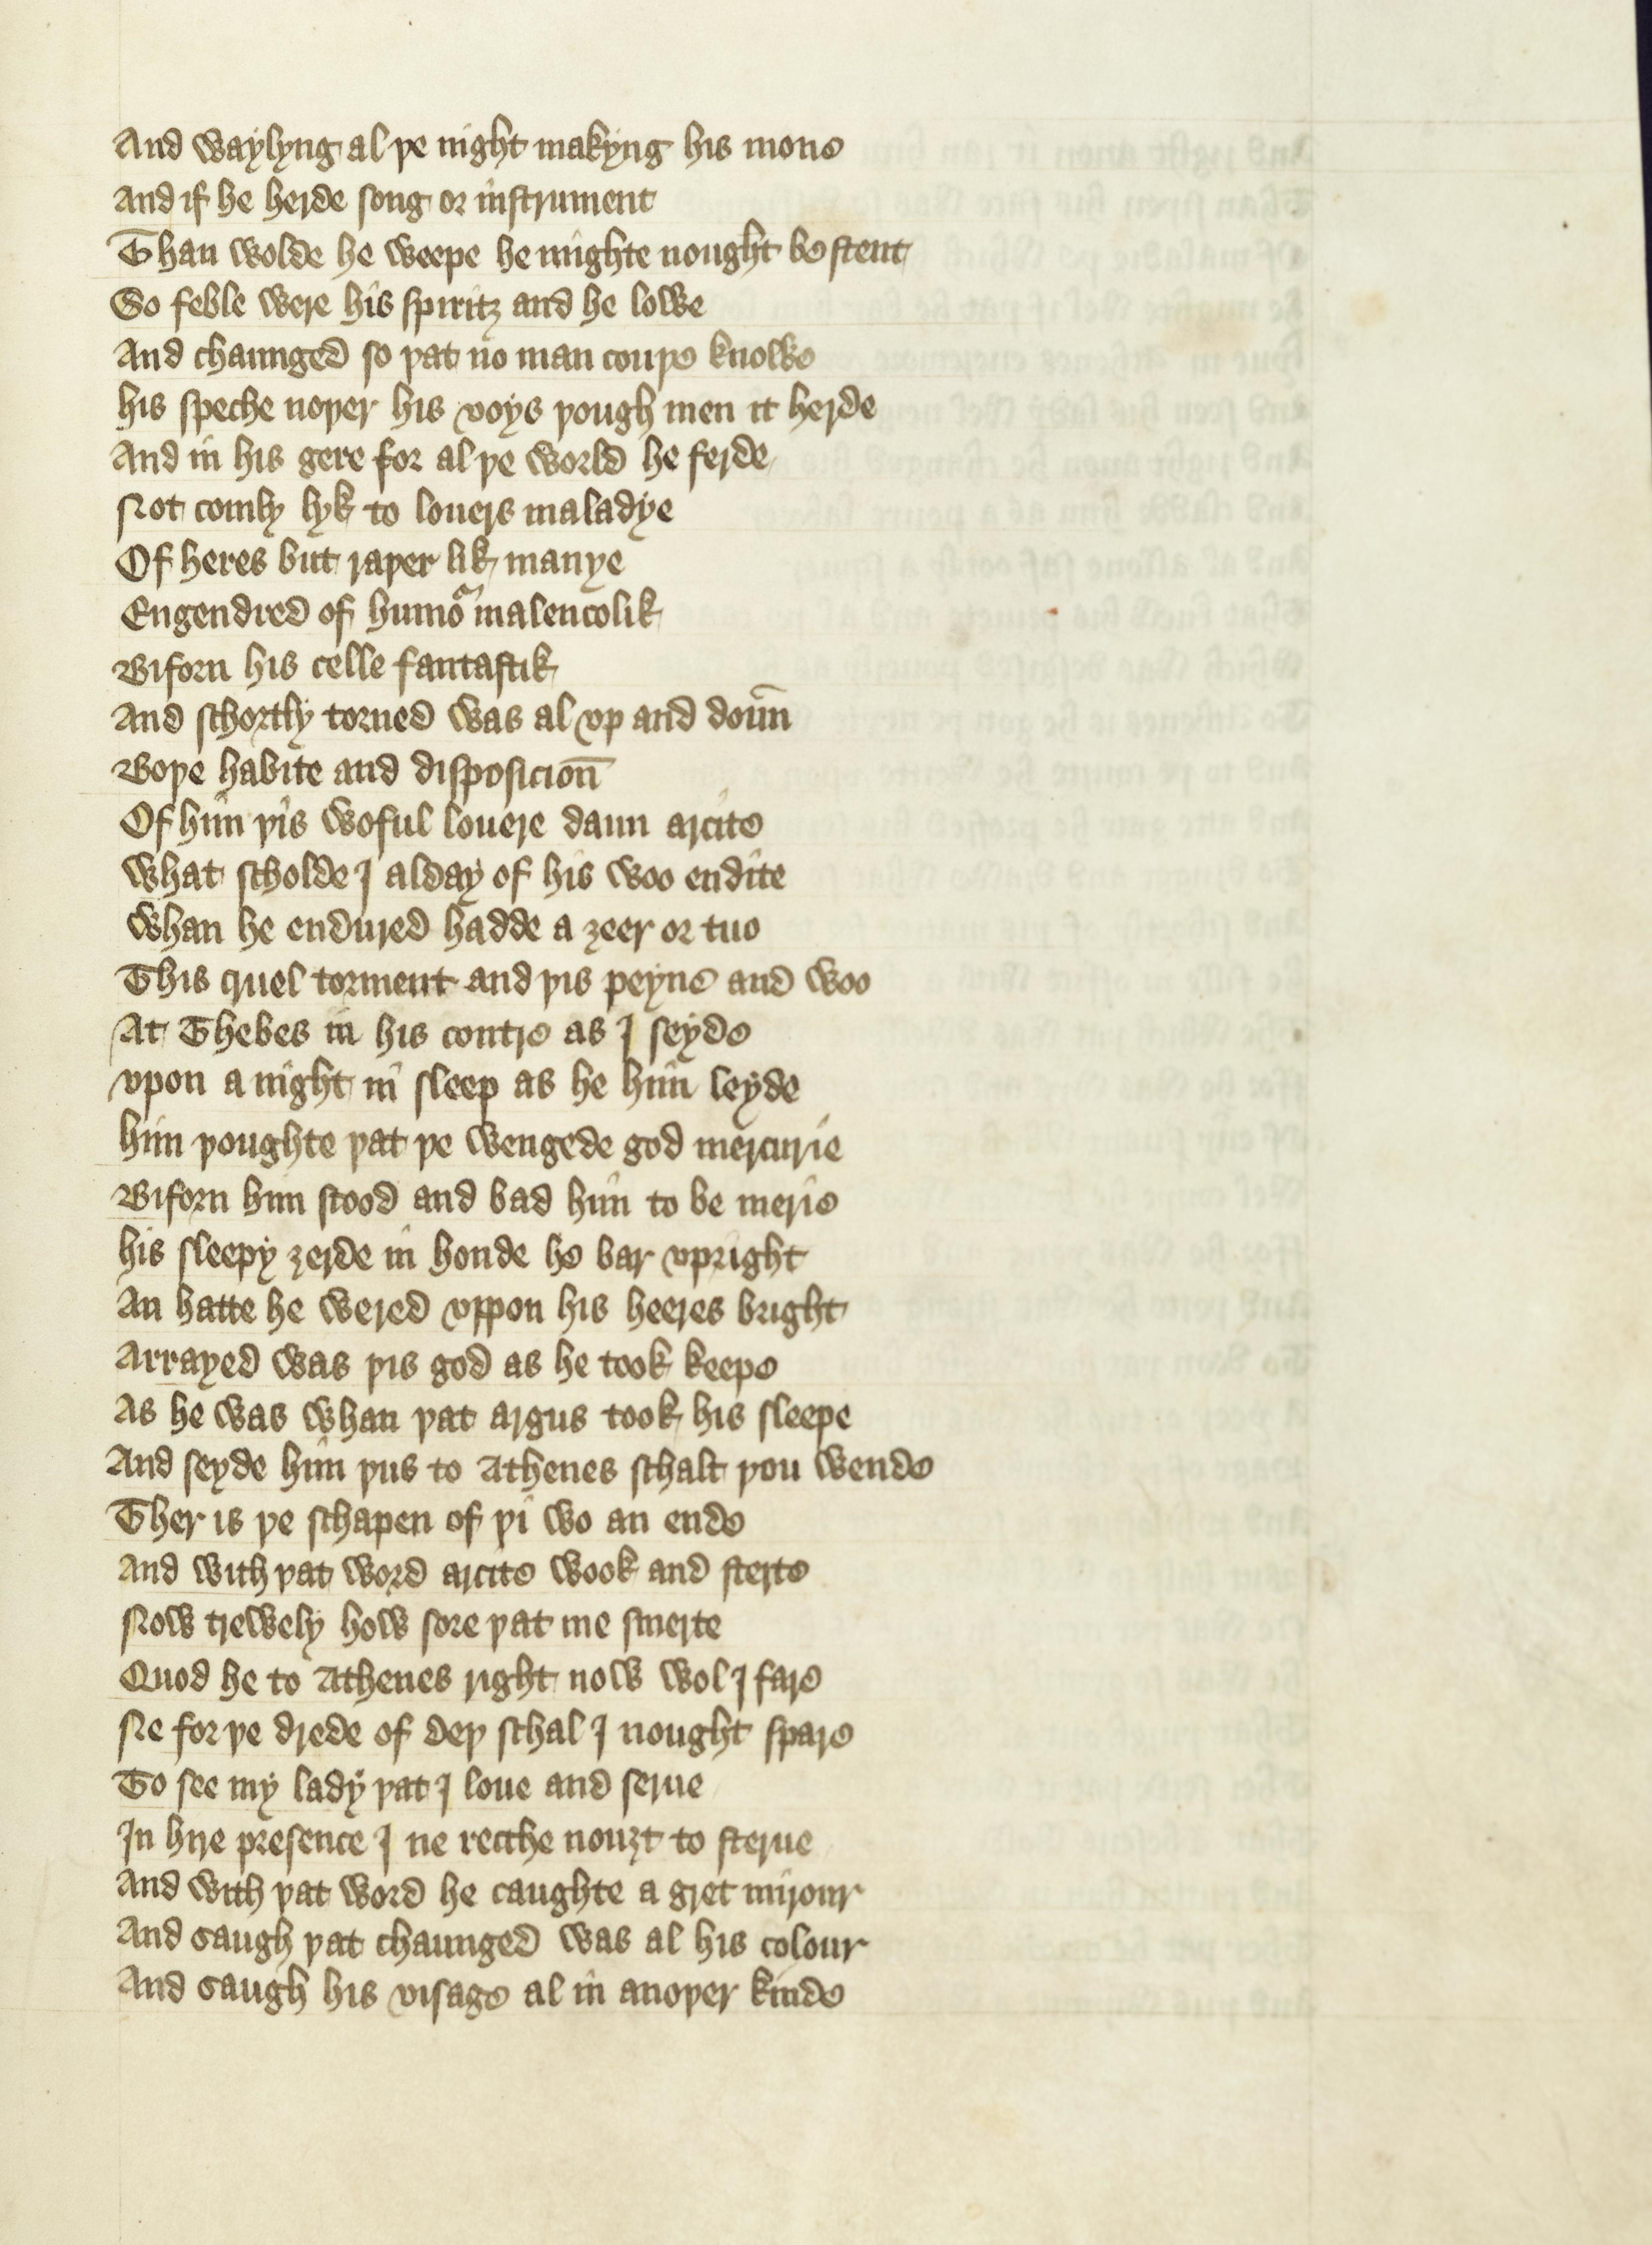 And waylyng al þe night makyng his mone
And if he herde song or instrument
Than wolde he weepe he mighte nought be stent
So feble were his spiritz and he lowe
And chaunged so þat no man couþe knowe
his speche noþer his voys þough men it herde
And in his gere for al þe world he ferde
Not comly lyk to louers maladye
Of heres but raþer lik manye
Engendred of humoᵃ malencolik
Biforn his celle fantastik
And schortly torned was al vp and doun̄
Boþe habite and disposicion̄
Of him þis woful louere daun arcite
What scholde I alday of his woo endite
Whan he endured hadde a ȝeer or tuo
This cruel torment and þis peyne and woo
At Thebes in his contre as I seyde
vpon a night in sleep as he him leyde
him þoughte þat þe wengede god mercurie
Biforn him stood and bad him to be merie
his sleepy ȝerde in honde he bar vpright
An hatte he wered vppon his heeres bright
Arrayed was þis god as he took keepe
As he was whan þat argus took his sleepe
And seyde him þus to Athenes schalt þou wende
Ther is þe schapen of þi wo an ende
And with þat word arcite wook and sterte
Now trewely how sore þat me smerte
Quod he to Athenes right now wol I fare
Ne for þe drede of deþ schal I nought spare
To see my lady þat I loue and serue
In hire presence I ne recche nouȝt to sterue
And with þat word he caughte a gret mirour
And saugh þat chaunged was al his colour
And saugh his visage al in anoþer kinde